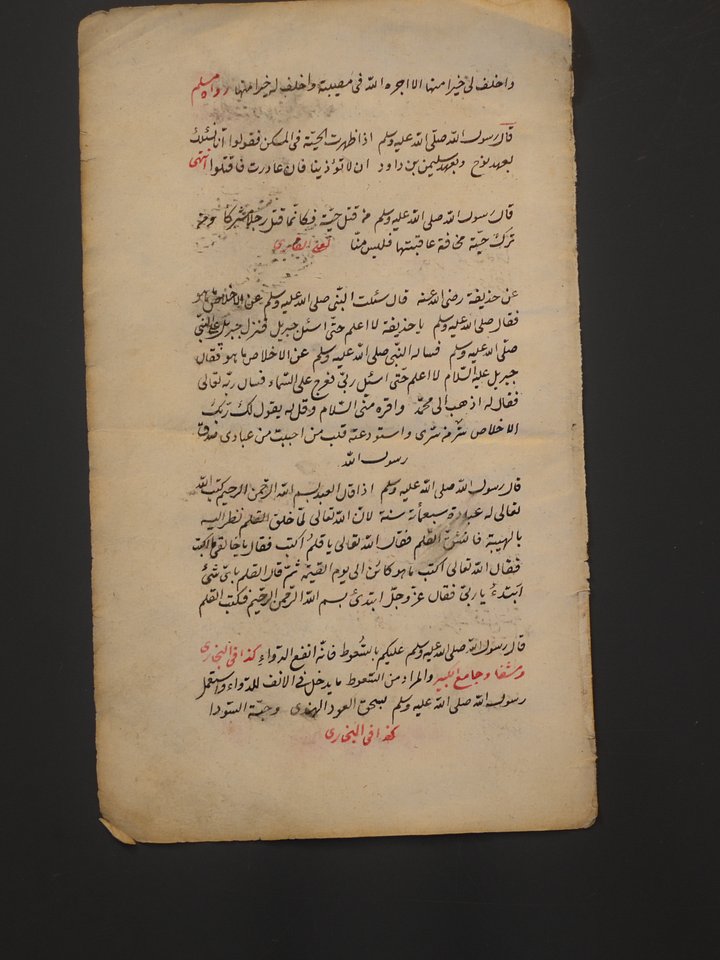 واخلف لى خيرا منها الا اجره الله فى مصيبة واخلف له خيرا منها رواه مسلم
قال رسول الله صلى الله عليه وسلم اذا ظهرت الحيّة فى المسكن فقولوا انا نسئلك
بعهد نوح وبعهد سليمن بن داود ان لا تؤذينا فان عادرت فاقتلوا انتهى
قال رسول الله صلى الله عليه وسلم من قتل حيّة فكانّما قتل رجلا مشركا ومن
ترك حيّة مخافة عاقبتها فليس منّا
عن حذيفة رضى الله عنه قال سئلت النبّى صلى الله عليه وسلم عن الاخلاص ما هو
فقال صلى الله عليه وسلم يا حذيفة لا اعلم حتّى اسئل جبريل فنزل جبريل على النبّى
صلى الله عليه وسلم فساله النبّى صلى الله عليه وسلم عن الاخلاص ما هو فقال
جبريل عليه السّلام لا اعلم حتّى اسئل ربّى فعرج على السّماء فسال ربّه تعالى
فقال له اذهب الى محمّد واقره منّى السّلام وقل له يقول لك ربّك
الاخلاص سرّ من سّرى واستودعته قلب من احببت من عبادى صدق
رسول الله
قال رسول الله صلى الله عليه وسلم اذا قال العبد بسم الله الرّحمن الرحيم كتب الله
تعالى له عبادة سبعمأئة سنة لانّ الله تعالى لمّا خلق القلم نظر اليه
بالهيبة فانشق القلم فقال الله تعالى يا قلم اكتب فقال يا خالقى ما اكتب
فقال الله تعالى اكتب ما هو كائن الى يوم القيمة ثمّ قال القلم باىّ شئ
ابتدء يا ربّى فقال عزّ وجلّ ابتدئ بسم الله الرّحمن الرحيم فكتب القلم
قال رسول الله صلى الله عليه وسلم عليكم بالسّعوط فانّه انفع الدواء كذا فى البخارى
وشفا وجامع الكبير والمراد من السّعوط ما يدخل فى الانف للدّواء واستعمل
رسول الله صلى الله عليه وسلم بسحق العود الهندى وحبّة السّودا
كذا فى البخارى